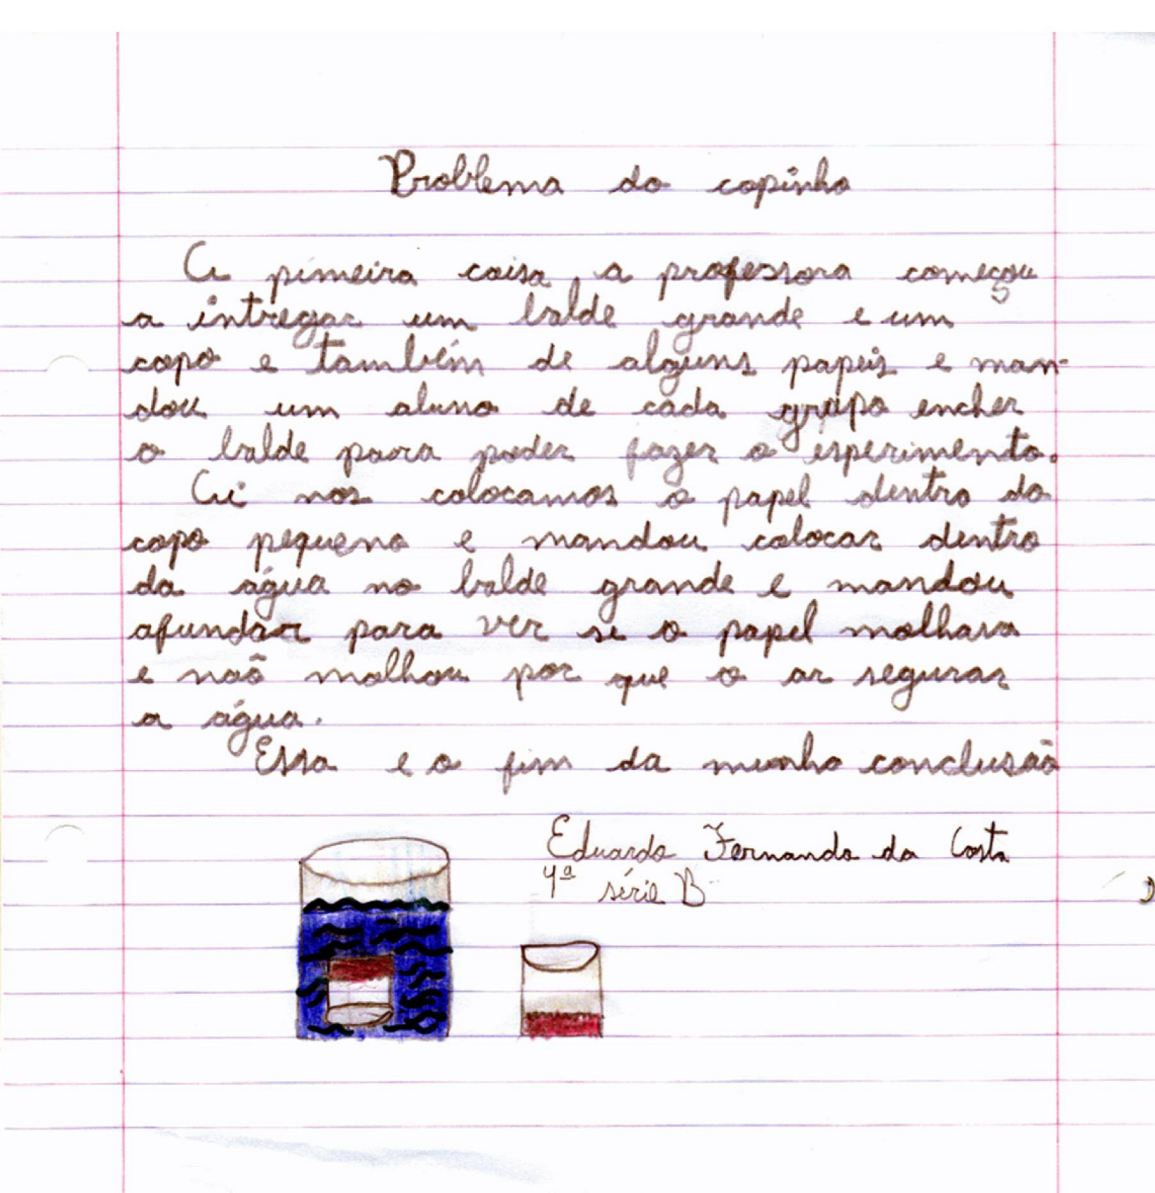 Problema do copinho
A pimeira coisa a professora começou
a intregar um balde grande e um
copo e também de alguns papeis e man-
dou um aluno de cada grupo encher
o balde para poder fazer o esperimento.
Ai nos colocamos o papel dentro do
copo pequeno e mandou colocar dentro
da água no balde grande e mandou
afundar para ver se o papel molhava
e naõ molhou por que o ar segurar
a água.
Essa e o fim da munha conclusaõ
Eduardo Fernando da Costa
4ª série B